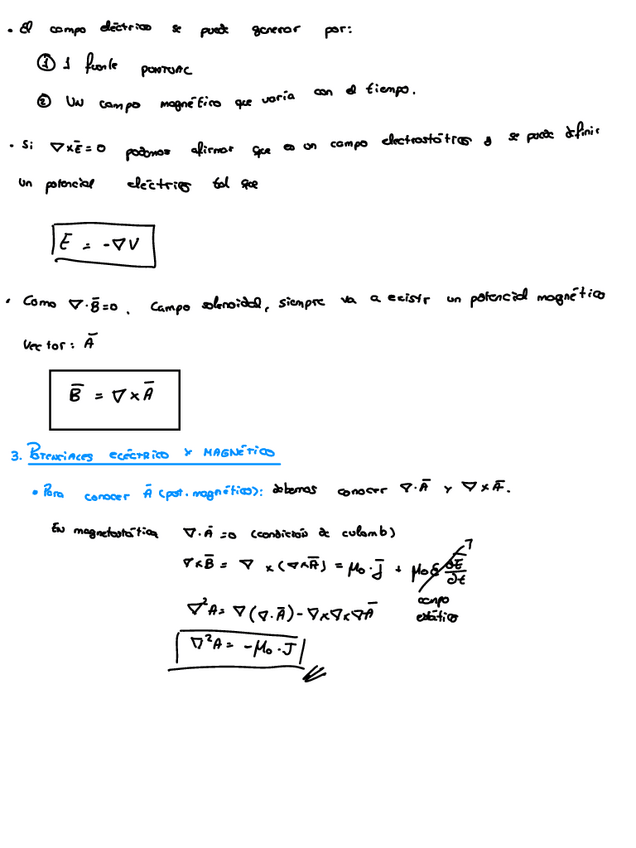 • El campo eléctrico se puede generar por:
① 1 fuente PONTUAL
② UN campo magnético que varía con el tiempo.
• Si ∇×E̅=0 podemos afirmar que es un campo electrostático y se puede definir
un potencial eléctrico tal que
E = -∇V
• Como ∇·B̅=0, campo solenoidal, siempre va a existir un potencial magnético
vector: A̅
B̅ = ∇×A̅
3. POTENCIALES ELÉCTRICO Y MAGNÉTICO
• Para conocer A̅ (pot. magnético): debemos conocer ∇·A̅ y ∇×A̅.
EN magnetostática ∇·A̅=0 (condición de culomb)
∇×B̅ = ∇×(∇×A̅) = μ₀·J̅ + μ₀ε ∂E̅/∂t
campo
estático
∇²A = ∇(∇·A̅) - ∇×∇×∇A̅
∇²A = -μ₀·J̅